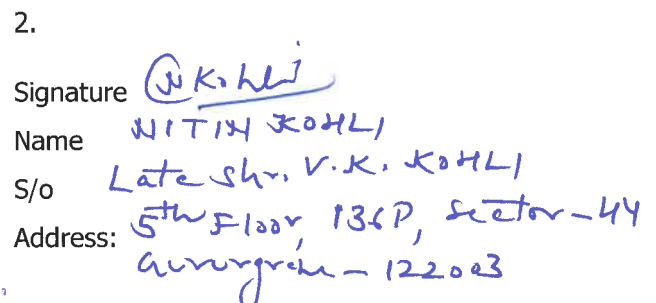 2.
Signature NKohli
Name NITIN KOHLI
S/o Late Shr. V.K. KOHLI
Address: 5th Floor, 136P, Sector-44
Gurugram - 122003